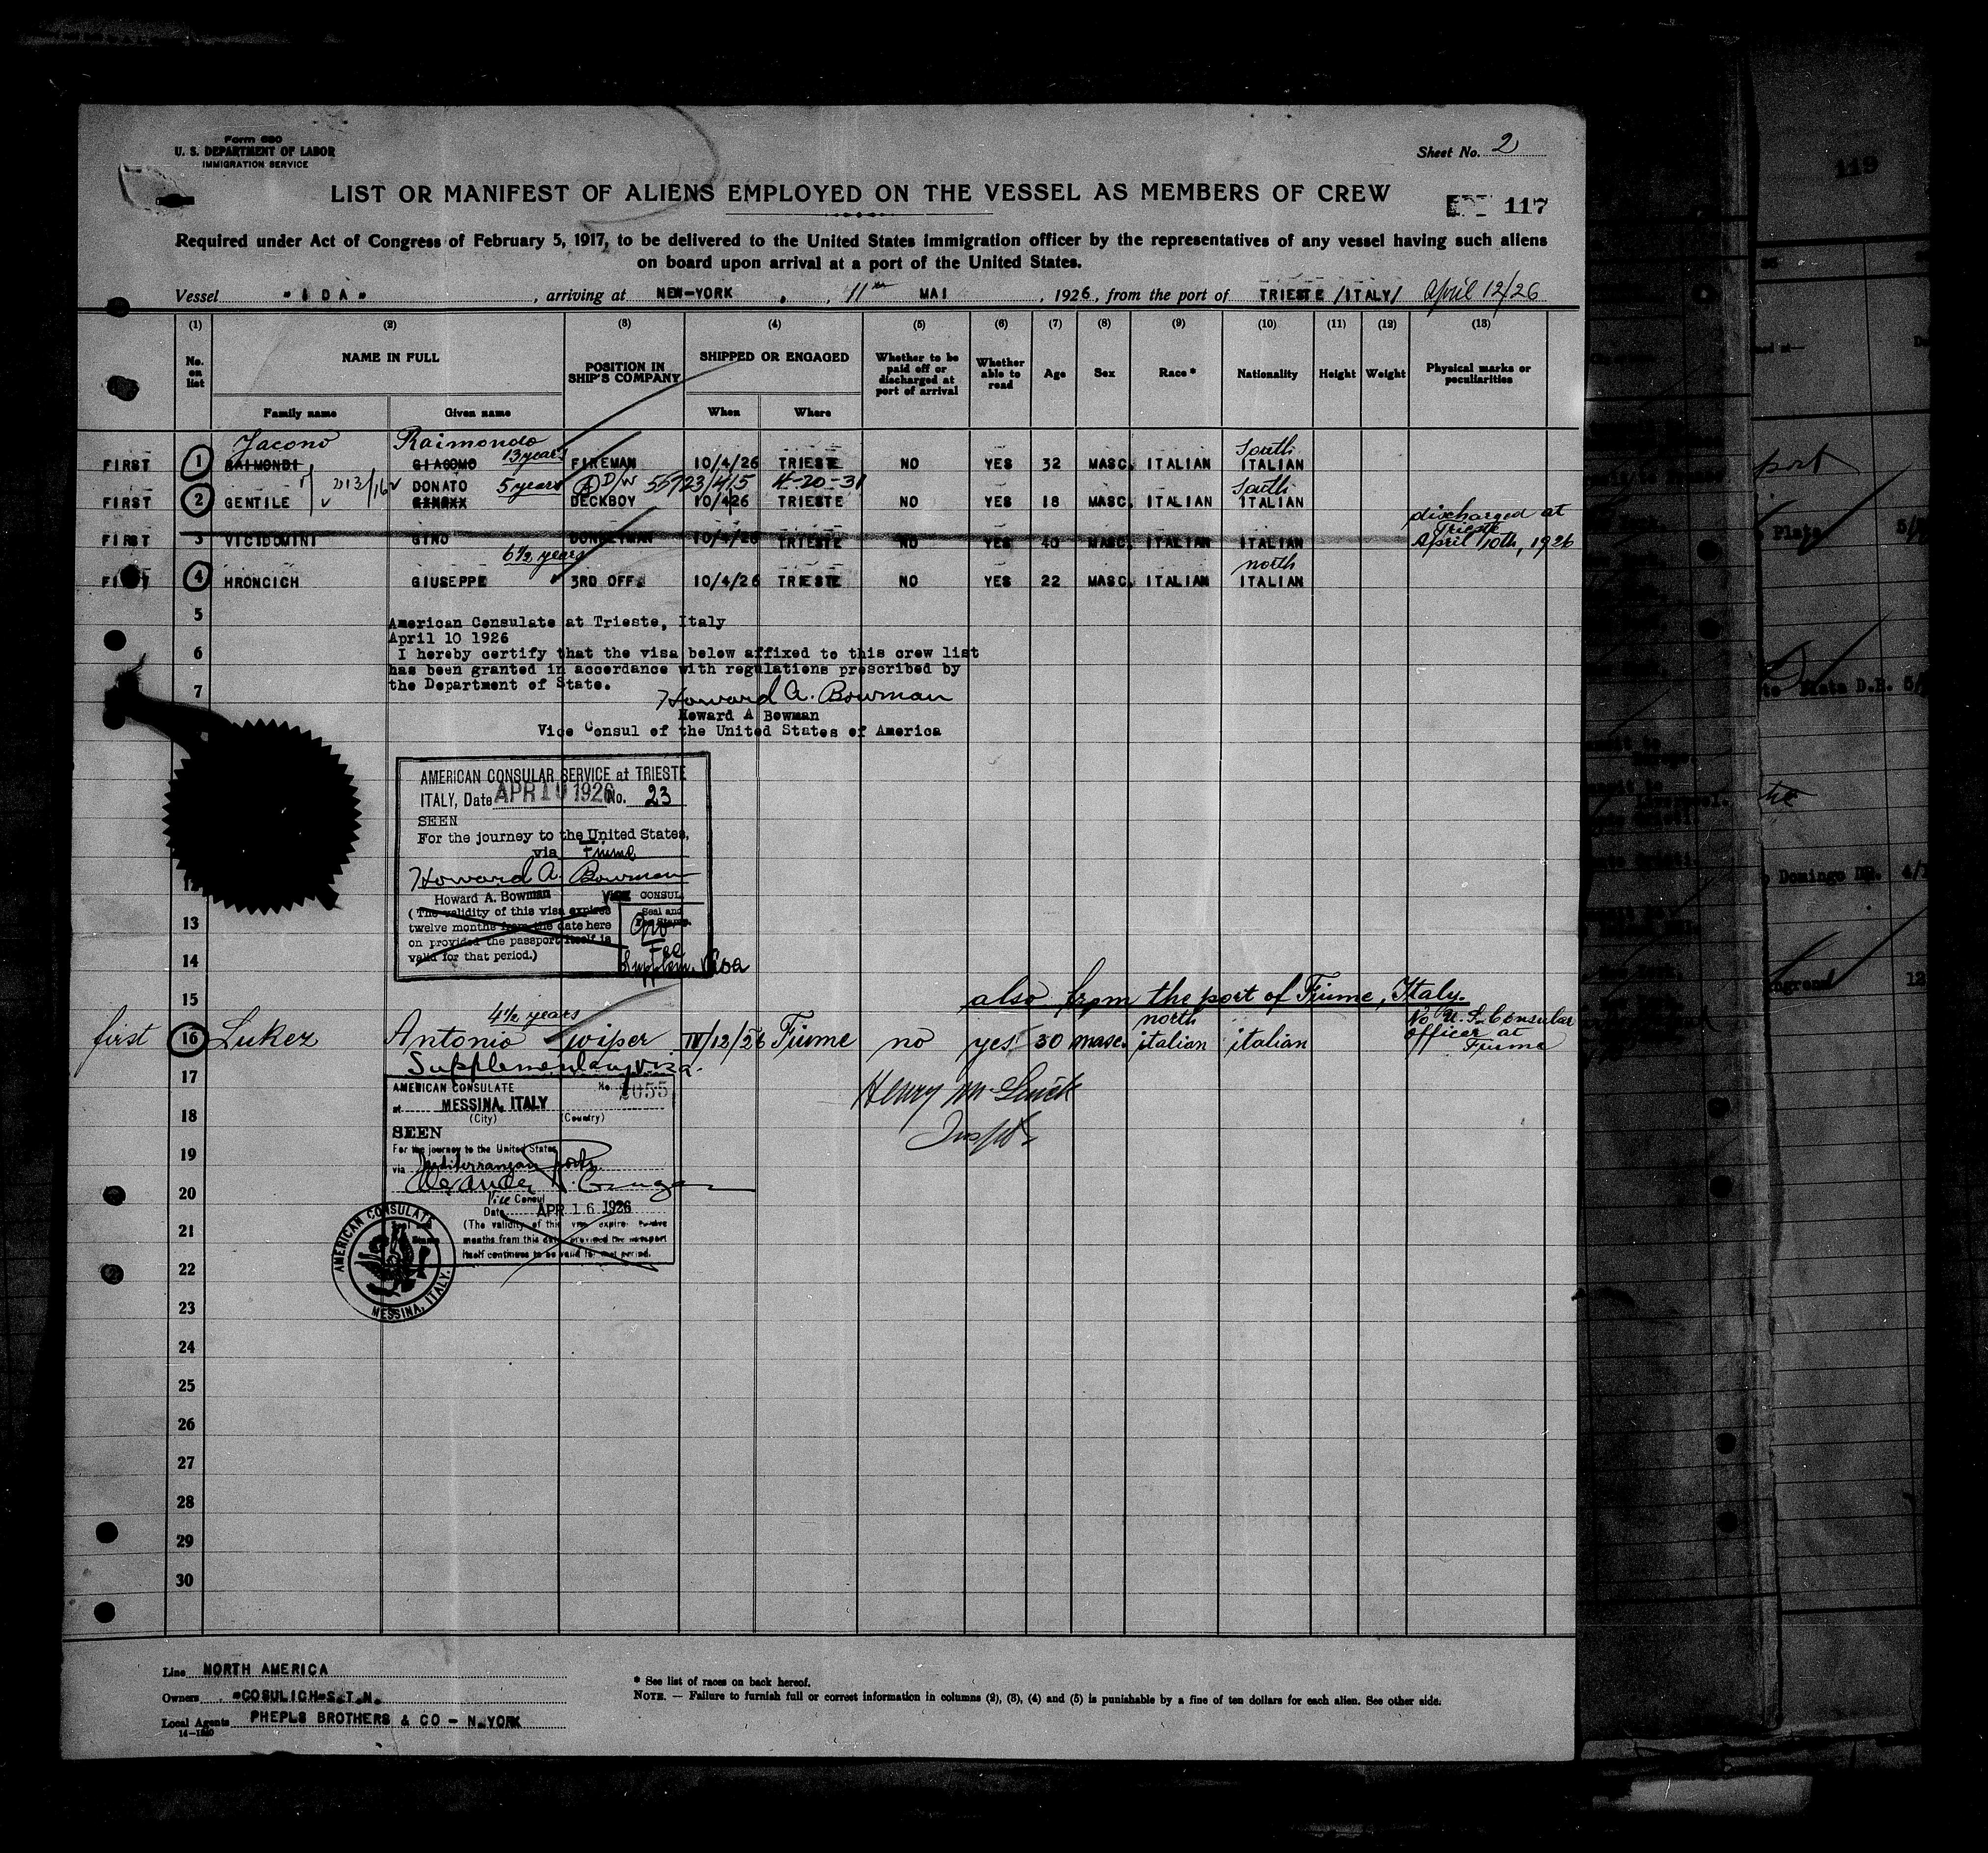 Form 680
U. S. DEPARTMENT OF LABOR
IMMIGRATION SERVICE
Sheet No. 2
LIST OR MANIFEST OF ALIENS EMPLOYED ON THE VESSEL AS MEMBERS OF CREW
117
Required under Act of Congress of February 5, 1917, to be delivered to the United States Immigration officer by the representatives of any vessel having such aliens
on board upon arrival at a port of the United States.
Vessel "IDA", arriving at NEW-YORK, 11th MAI, 1926, from the port of TRIESTE /ITALY/ April 12/26
(1) (2) (3) (4) (5) (6) (7) (8) (9) (10) (11) (12) (13)
No. on list
NAME IN FULL
Family name
Given name
POSITION IN SHIP'S COMPANY
SHIPPED OR ENGAGED
When
Where
Whether to be paid off or discharged at port of arrival
Whether able to read
Age
Sex
Race *
Nationality
Height
Weight
Physical marks or peculiarities
Jacono Raimondo
13 years South
FIRST 1 RAIMONDI GIACOMO FIREMAN 10/4/26 TRIESTE NO YES 32 MASC. ITALIAN ITALIAN
DONATO 5 years D/W 557 23/4/5 4-20-31 South
FIRST 2 GENTILE DECKBOY 10/426 TRIESTE NO YES 18 MASC. ITALIAN ITALIAN
discharged at
Trieste
April 10th, 1926
FIRST 3 VICIDOMINI GINO DONKEYMAN 10/4/26 TRIESTE NO YES 40 MASC. ITALIAN ITALIAN
6 1/2 years north
FIRST 4 HRONCICH GIUSEPPE 3RD OFF. 10/4/26 TRIESTE NO YES 22 MASC. ITALIAN ITALIAN
5
American Consulate at Trieste, Italy
April 10 1926
6
I hereby certify that the visa below affixed to this crew list
has been granted in accordance with regulations prescribed by
7
the Department of State.
Howard A. Bowman
Howard A Bowman
Vice Consul of the United States of America
AMERICAN CONSULAR SERVICE at TRIESTE
ITALY, Date APR 10 1926 No. 23
SEEN
For the journey to the United States,
via Fiume
Howard A. Bowman
Howard A. Bowman VICE CONSUL
(The validity of this visa expires
twelve months from the date here
on provided the passport itself is
valid for that period.)
Seal and
Fee Stamp.
No
Fee
Supplem. Visa
12
13
14
15
also from the port of Fiume, Italy.
4 1/2 years north
first 16 Luker Antonio wiper IV/12/26 Fiume no yes 30 masc. italian italian
No U.S. Consular
officer at
Fiume
Supplementary visa.
17
AMERICAN CONSULATE No. 2055
at MESSINA, ITALY
(City) (Country)
SEEN
For the journey to the United States
via Mediterranean Ports
Vice Consul
Date APR 16 1926
(The validity of this visa expires twelve
months from this date provided the passport
itself continues to be valid for that period.
AMERICAN CONSULATE
MESSINA, ITALY.
Henry
18
19
20
21
22
23
24
25
26
27
28
29
30
Line NORTH AMERICA
Owners "COSULICH" S.T.N.
Local Agents PHEPLS BROTHERS & CO - N.YORK
* See list of races on back hereof.
NOTE. — Failure to furnish full or correct information in columns (2), (3), (4) and (5) is punishable by a fine of ten dollars for each alien. See other side.
119
port
Plata
Plata D.R.
Domingo DR.